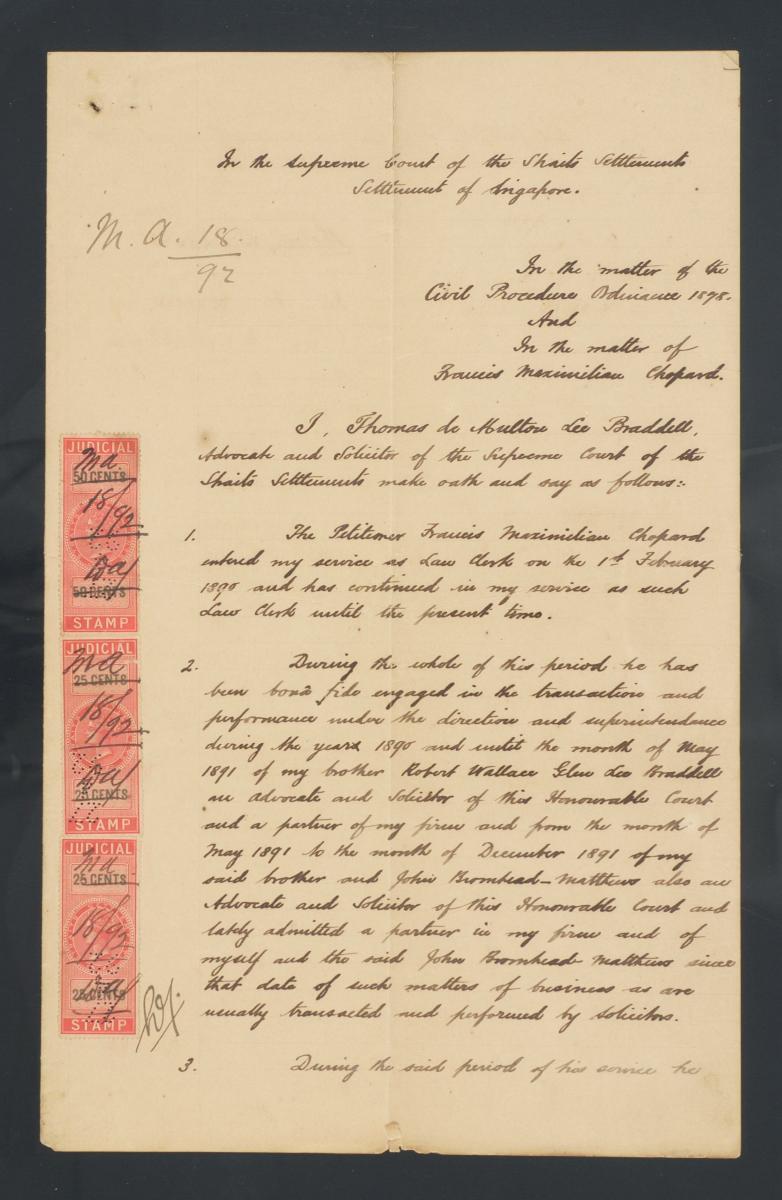 In the Supreme Court of the Straits Settlements
Settlement of Singapore.
M. A. 18
92
In the matter of the
Civil Procedure Ordinance 1878.
And
In the matter of
Francis Maximilian Chopard.
I, Thomas de Multon Lee Braddell,
Advocate and Solicitor of the Supreme Court of the
Straits Settlements make oath and say as follows:-
1. The Petitioner Francis Maximilian Chopard
entered my service as Law Clerk on the 1st February
1890 and has continued in my service as such
Law Clerk until the present time.
2. During the whole of this period he has
been bonâ fide engaged in the transaction and
performance under the direction and superintendance
during the years 1890 and until the month of May
1891 of my brother Robert Wallace Glen Lee Braddell
an advocate and Solicitor of this Honourable Court
and a partner of my firm and from the month of
May 1891 to the month of December 1891 of my
said brother and John Bromhead-Matthews also an
Advocate and Solicitor of this Honourable Court and
lately admitted a partner in my firm and of
myself and the said John Bromhead Matthews since
that date of such matters of business as are
usually transacted and performed by Solicitors.
3. During the said period of his service he
JUDICIAL
MA
50 CENTS
18/92
50 CENTS
STAMP
JUDICIAL
MA
25 CENTS
18/92
25 CENTS
STAMP
JUDICIAL
MA
25 CENTS
18/92
25 CENTS
STAMP